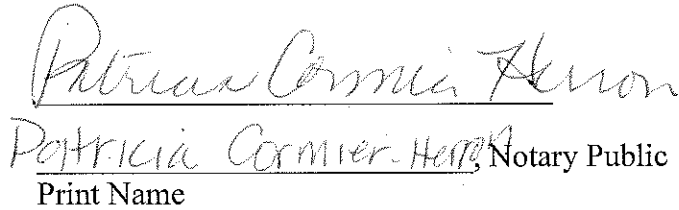 Patricia Cormier Herron
Patricia Cormier-Herron, Notary Public
Print Name